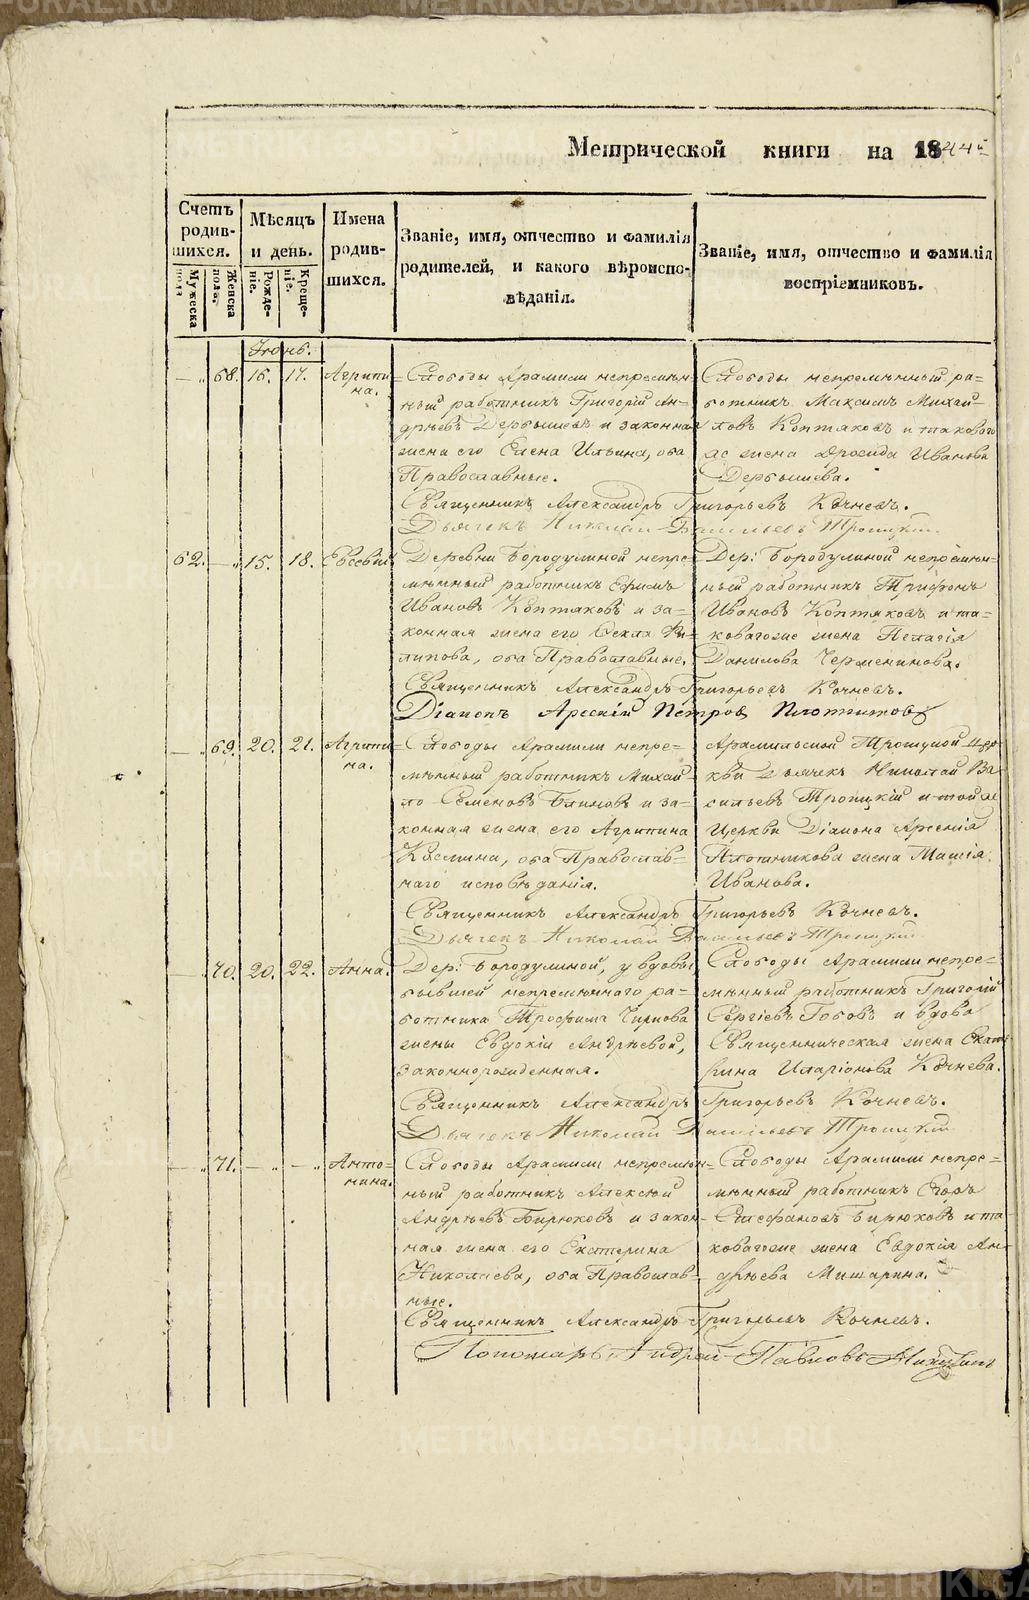 Метрической книги на 1844й
Счетъ родив-шихся.
Мужеска пола
Женска пола.
Мѣсяцъ и день.
Рожде-ніе.
Креще-ніе.
Имена родив-шихся.
Званіе, имя, отчество и фамилія
родителей, и какого вѣроиспо-
вѣданія.
Званіе, имя, отчество и фамилія
воспріемниковъ.
Іюнь.
68. 16. 17. Агрипи=
на.
Слободы Арамили непремѣн=
ный работникъ Григорій Ан=
дрѣевъ Дербышевъ и законная
жена его Елена Ильина, оба
Православные.
Слободы непремѣнный ра=
ботникъ Максимъ Михай=
ловъ Коптяковъ и таковаго
же жена Дросида Иванова
Дербышева.
Священникъ Александръ Григорьевъ Кочневъ.
Дьячекъ Николай Васильевъ Троицкій
62. 15. 18. Евсевій
Деревни Бородулиной непре=
мѣнный работникъ Ефимъ
Ивановъ Коптяковъ и за=
конная жена его Ѳекла Фи=
липова, оба Православные.
Дер: Бородулиной непремѣн=
ный работникъ Трифонъ
Ивановъ Коптяковъ и та=
коваго же жена Пелагія
Данилова Черменинова.
Священникъ Александръ Григорьевъ Кочневъ.
Діаконъ Арсеній Петровъ Плотниковъ
69. 20. 21. Агрипи=
на.
Слободы Арамили непре=
мѣнный работникъ Михай=
ло Семеновъ Блиновъ и за=
конная жена его Агрипина
Козмина, оба Православ=
наго исповѣданія.
Арамильской Троицкой Цер=
кви Дьячекъ Николай Ва=
сильевъ Троицкій и той же
Церкви Діакона Арсенія
Плотникова жена Таисія
Иванова.
Священникъ Александръ Григорьевъ Кочневъ.
Дьячекъ Николай Васильевъ Троицкій
70. 20. 22. Анна.
Дер: Бородулиной, у вдовы
бывшей непремѣннаго ра=
ботника Трофима Чиркова
жены Евдокіи Андрѣевой,
законнорожденная.
Слободы Арамили непре=
мѣнный работникъ Григорій
Сергіевъ Бобовъ и вдова
Священническая жена Екате
рина Иларіонова Кочнева.
Священникъ Александръ Григорьевъ Кочневъ.
Дьячекъ Николай Васильевъ Троицкій
71. Анто=
нина.
Слободы Арамили непремѣн=
ный работникъ Алексѣй
Андрѣевъ Бирюковъ и закон=
ная жена его Екатерина
Николаева, оба Православ=
ные.
Слободы Арамили непре=
мѣнный работникъ Егоръ
Стефановъ Бирюковъ и та=
коваго же жена Евдокія Ан=
дрѣева Митарина.
Священникъ Александръ Григорьевъ Кочневъ.
Пономарь Андрей Павловъ Никитинъ
METRIKI.GASO-URAL.RU